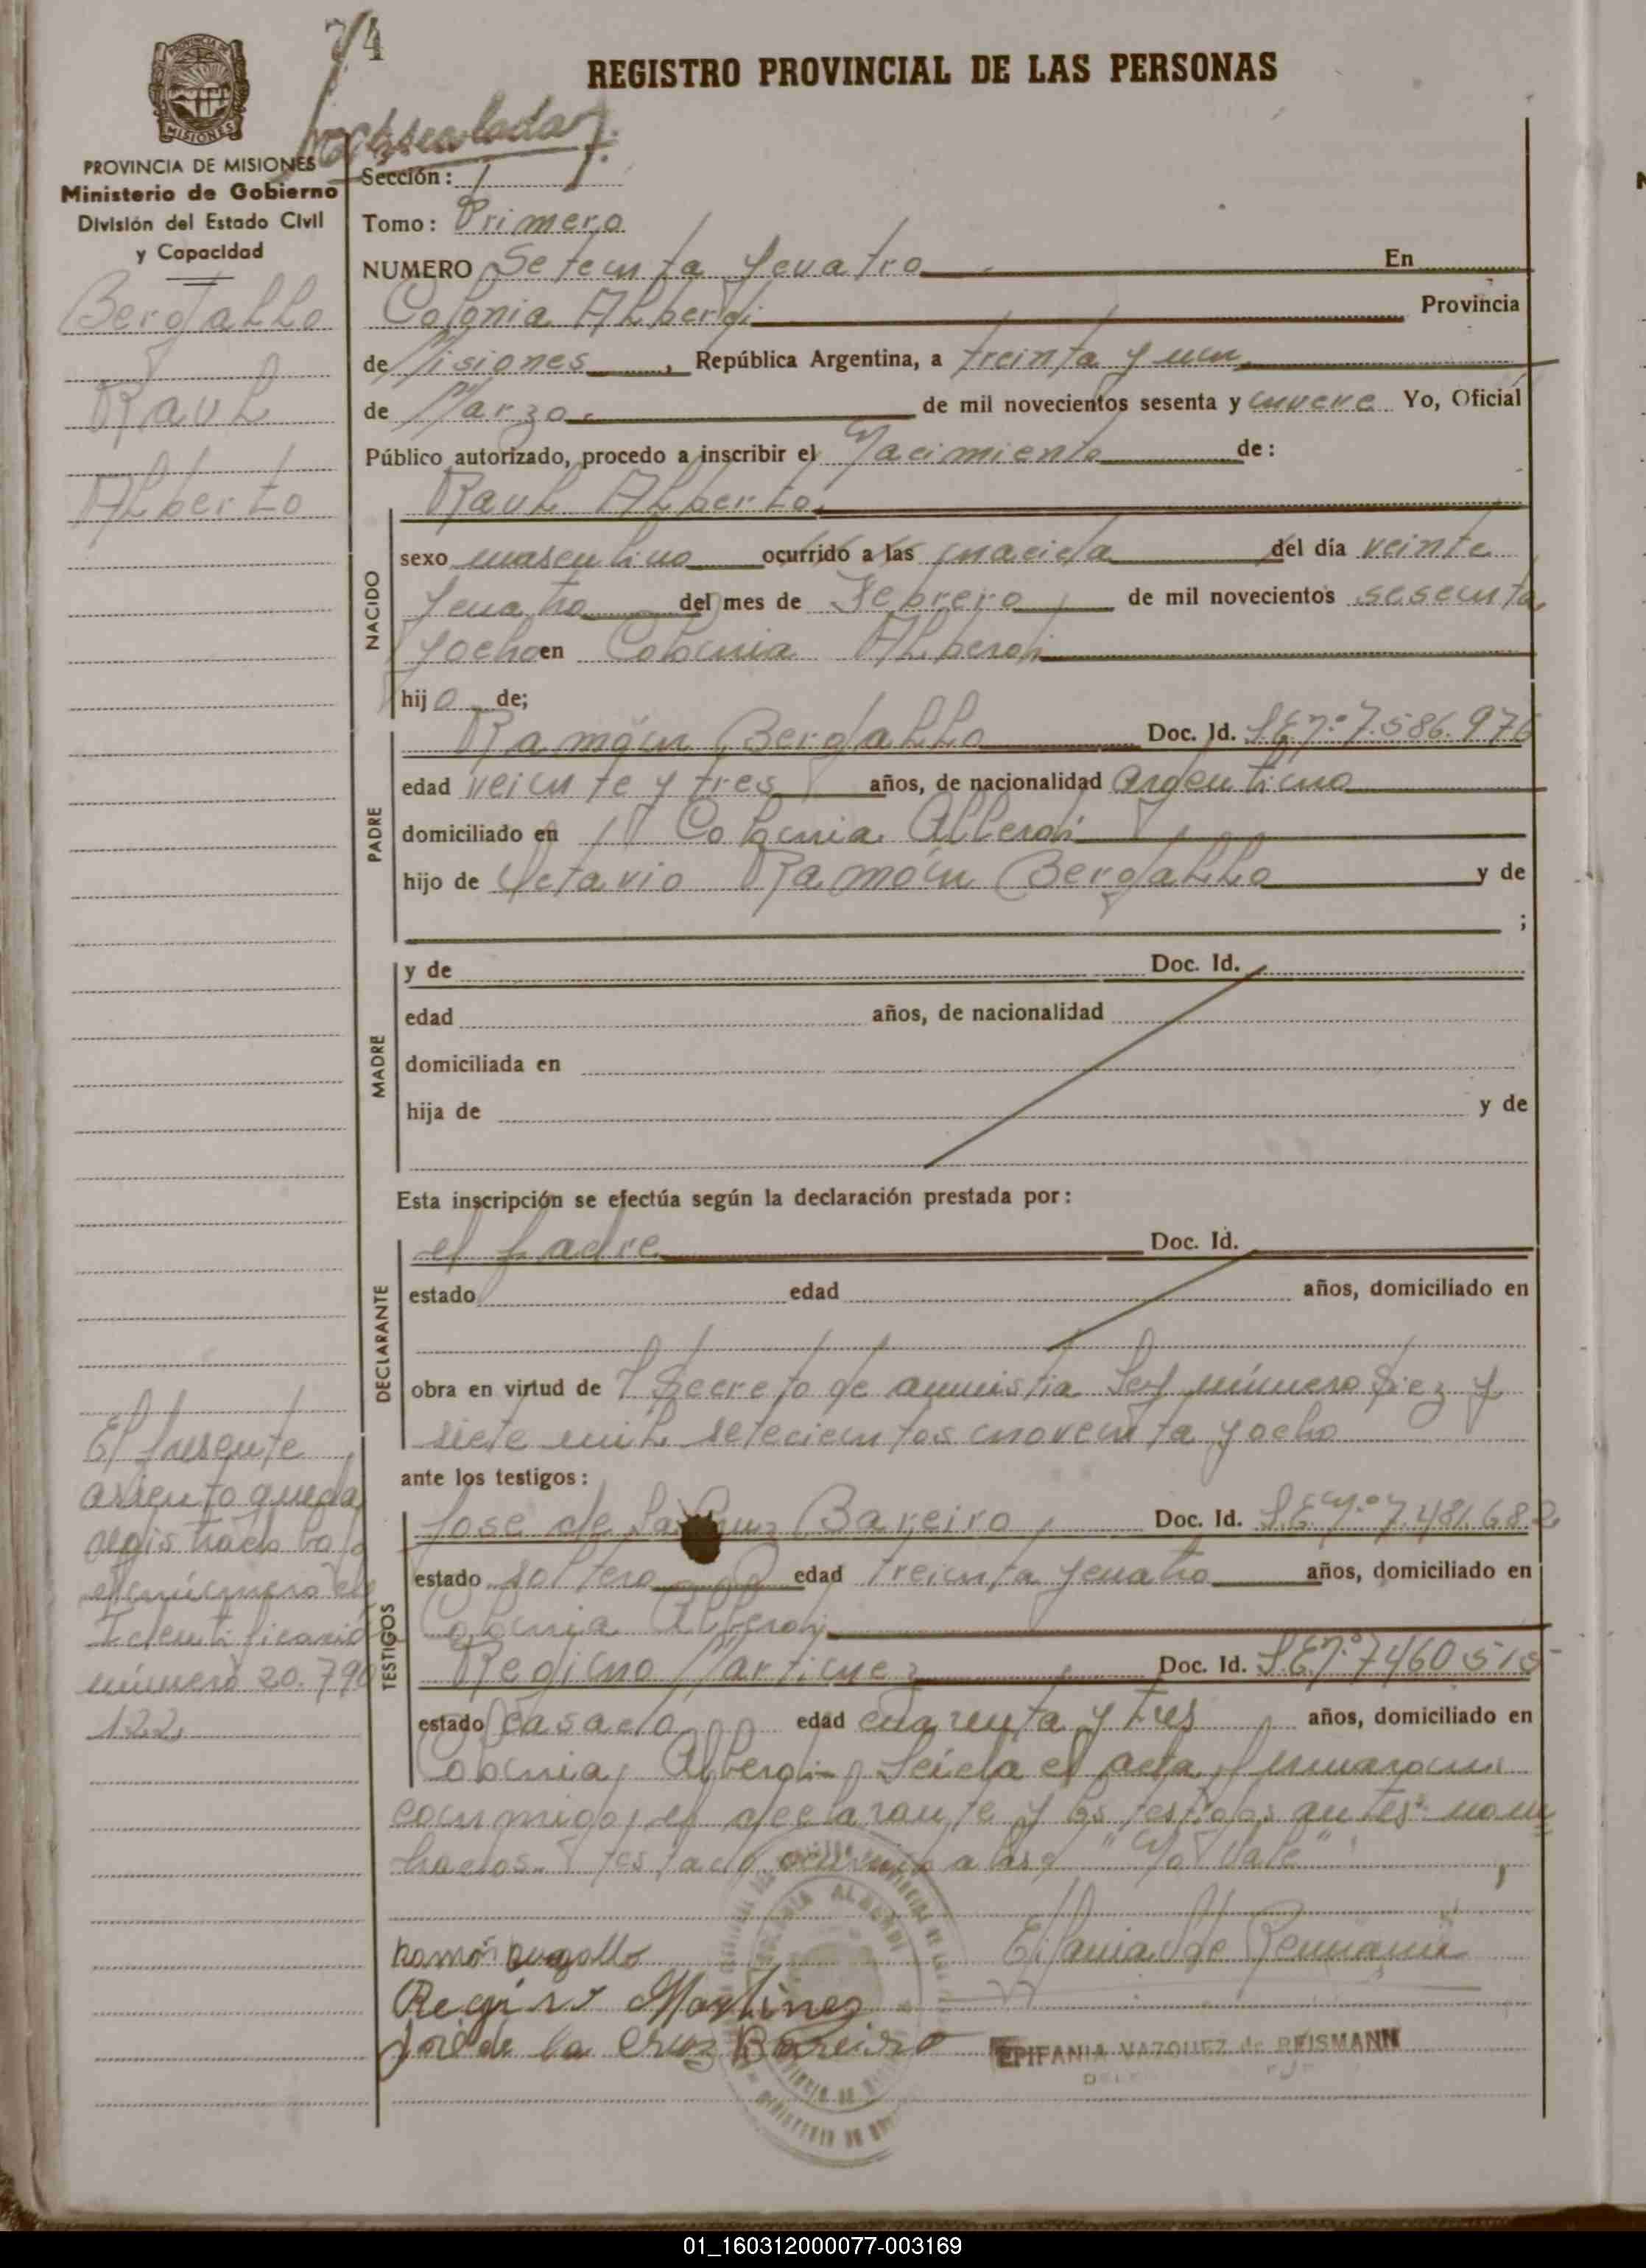 74
REGISTRO PROVINCIAL DE LAS PERSONAS
PROVINCIA DE MISIONES
Ministerio de Gobierno
División del Estado Civil
y Capacidad
Sección: 1
Tomo: Primero
NUMERO Setenta y cuatro En
Colonia Alberdi Provincia
de Misiones, República Argentina, a treinta y un
de Marzo de mil novecientos sesenta y nueve Yo, Oficial
Público autorizado, procedo a inscribir el Nacimiento de:
Raul Alberto
Bergallo
Raul
Alberto
NACIDO
sexo masculino ocurrido a las nacida del día veinte
y cuatro del mes de Febrero de mil novecientos sesenta
y ocho en Colonia Alberdi
hijo de;
PADRE
Ramón Bergallo Doc. Id. L.E. Nº 7.586.976
edad veinte y tres años, de nacionalidad Argentino
domiciliado en Colonia Alberdi
hijo de Octavio Ramón Bergallo y de
;
MADRE
y de Doc. Id.
edad años, de nacionalidad
domiciliada en
hija de y de
Esta inscripción se efectúa según la declaración prestada por:
DECLARANTE
el padre Doc. Id.
estado edad años, domiciliado en
obra en virtud de Decreto de amnistia Ley número Diez y
siete mil setecientos noventa y ocho
ante los testigos:
TESTIGOS
Jose de la Cruz Bareiro Doc. Id. L.E. Nº 7.481.682
estado soltero edad treinta y cuatro años, domiciliado en
Colonia Alberdi
Regino Martinez Doc. Id. L.E. Nº 7460515
estado casado edad cuarenta y tres años, domiciliado en
Colonia Alberdi Leida el acta, firmaron
conmigo, el declarante y los testigos antes nom
brados. Testado ocurrido a las "No Vale"
El presente
asiento queda
registrado bajo
el número de
Identificación
número 20.790
122
Ramón Bergallo
Regino Martinez
José de la Cruz Bareiro
EPIFANIA VAZQUEZ de REISMANN
01_160312000077-003169